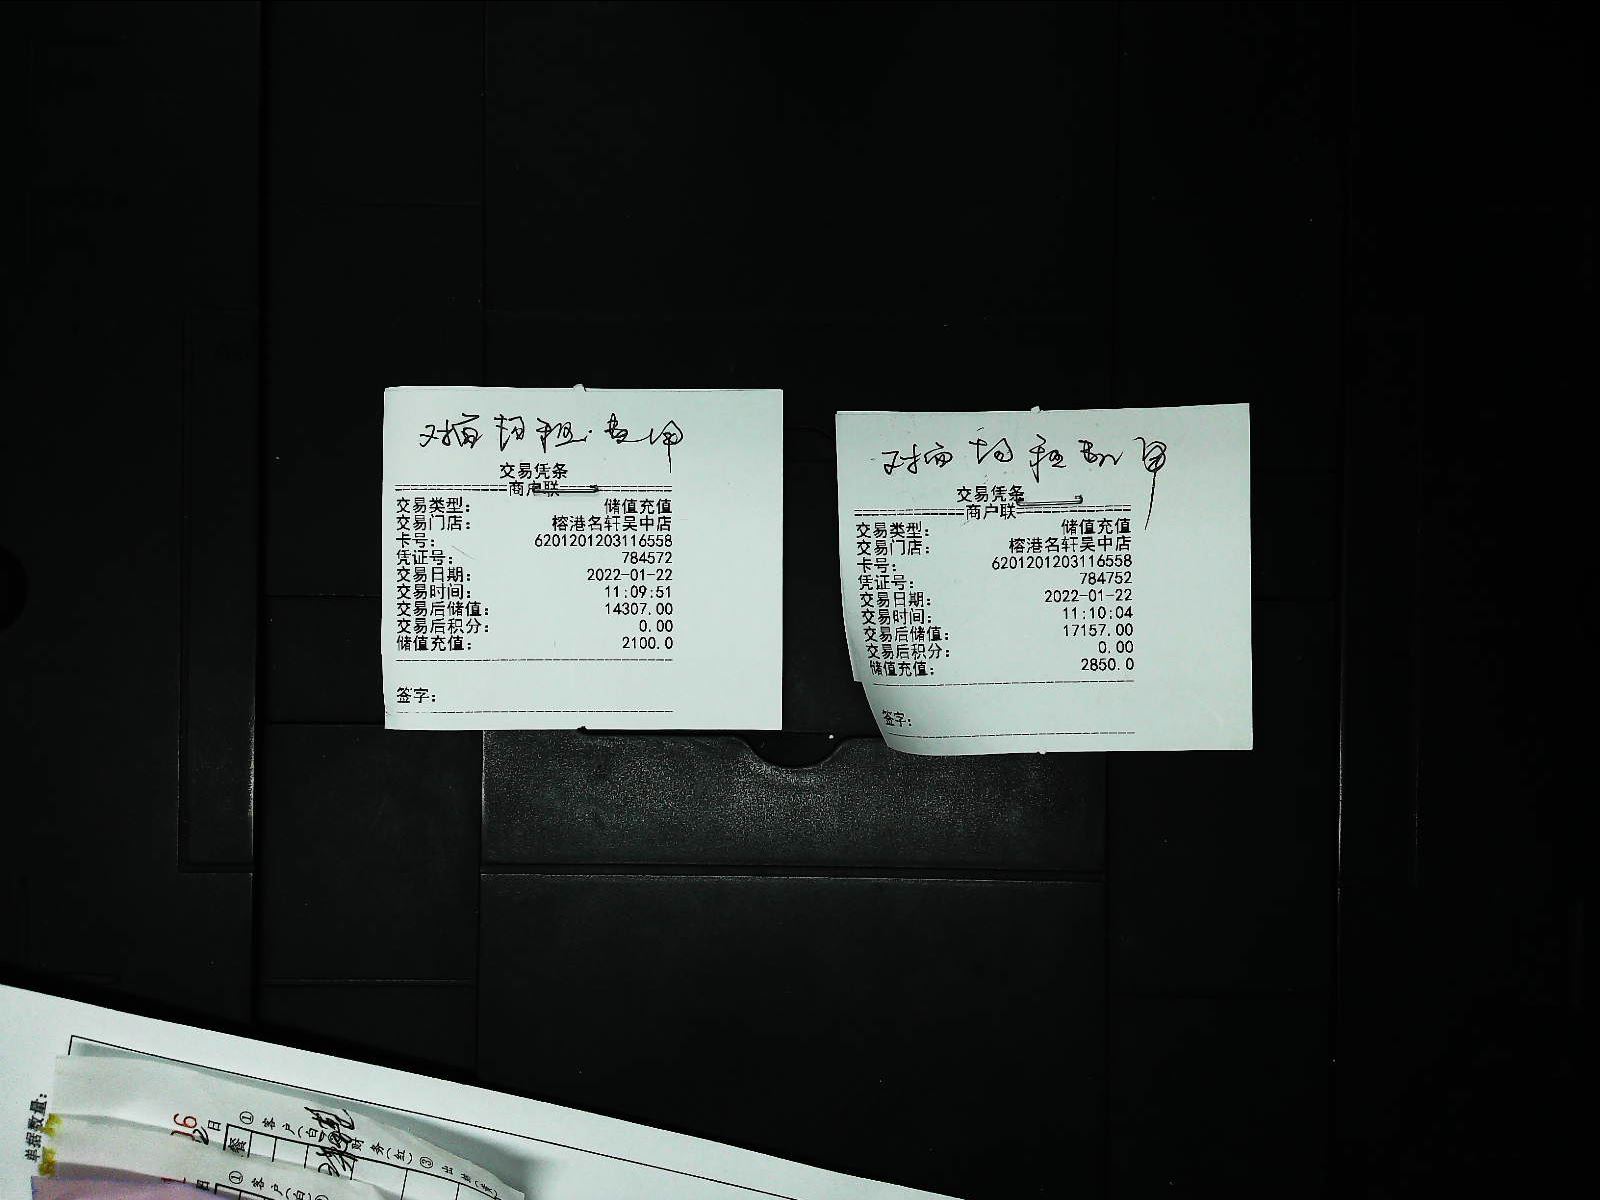 交易凭条
商户联
交易类型: 储值充值
交易门店: 榕港名轩吴中店
卡号: 6201201203116558
凭证号: 784572
交易日期: 2022-01-22
交易时间: 11:09:51
交易后储值: 14307.00
交易后积分: 0.00
储值充值: 2100.0
签字:
交易凭条
商户联
交易类型: 储值充值
交易门店: 榕港名轩吴中店
卡号: 6201201203116558
凭证号: 784752
交易日期: 2022-01-22
交易时间: 11:10:04
交易后储值: 17157.00
交易后积分: 0.00
储值充值: 2850.0
签字:
单据数量:
日
①客户(白)
财务(红)③
餐
日
①客户(白)